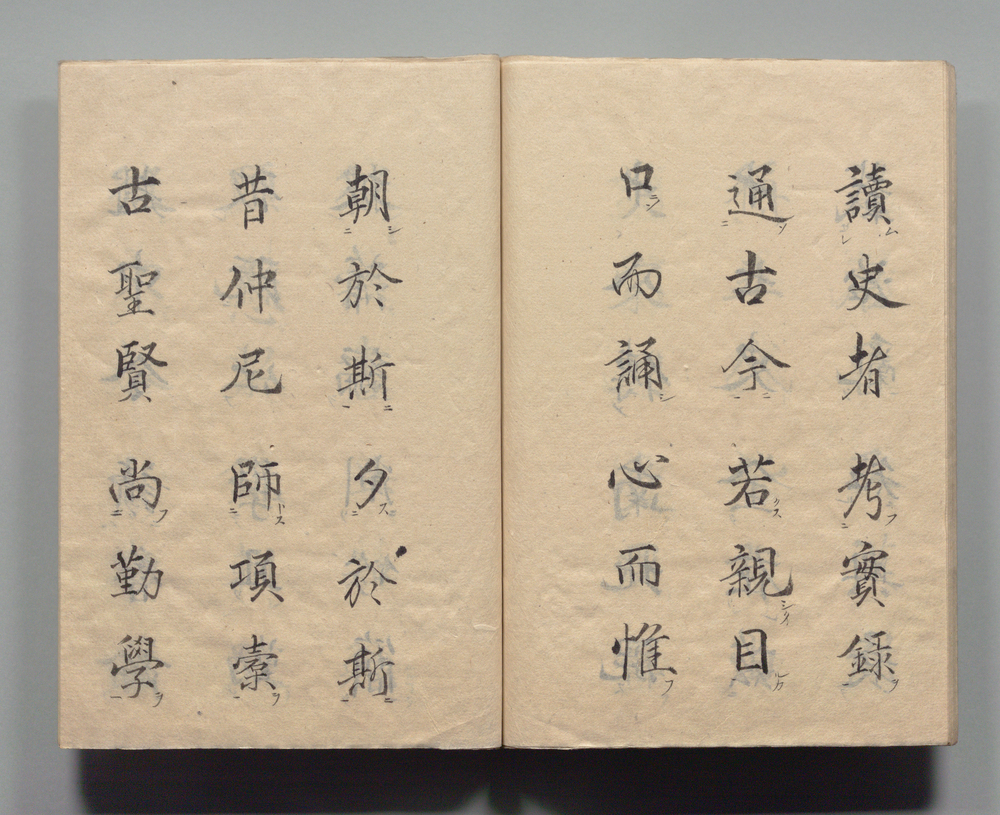 讀史者考實錄
通古今若親目
口而誦心而惟
朝於斯夕於斯
昔仲尼師項橐
古聖賢尚勤學